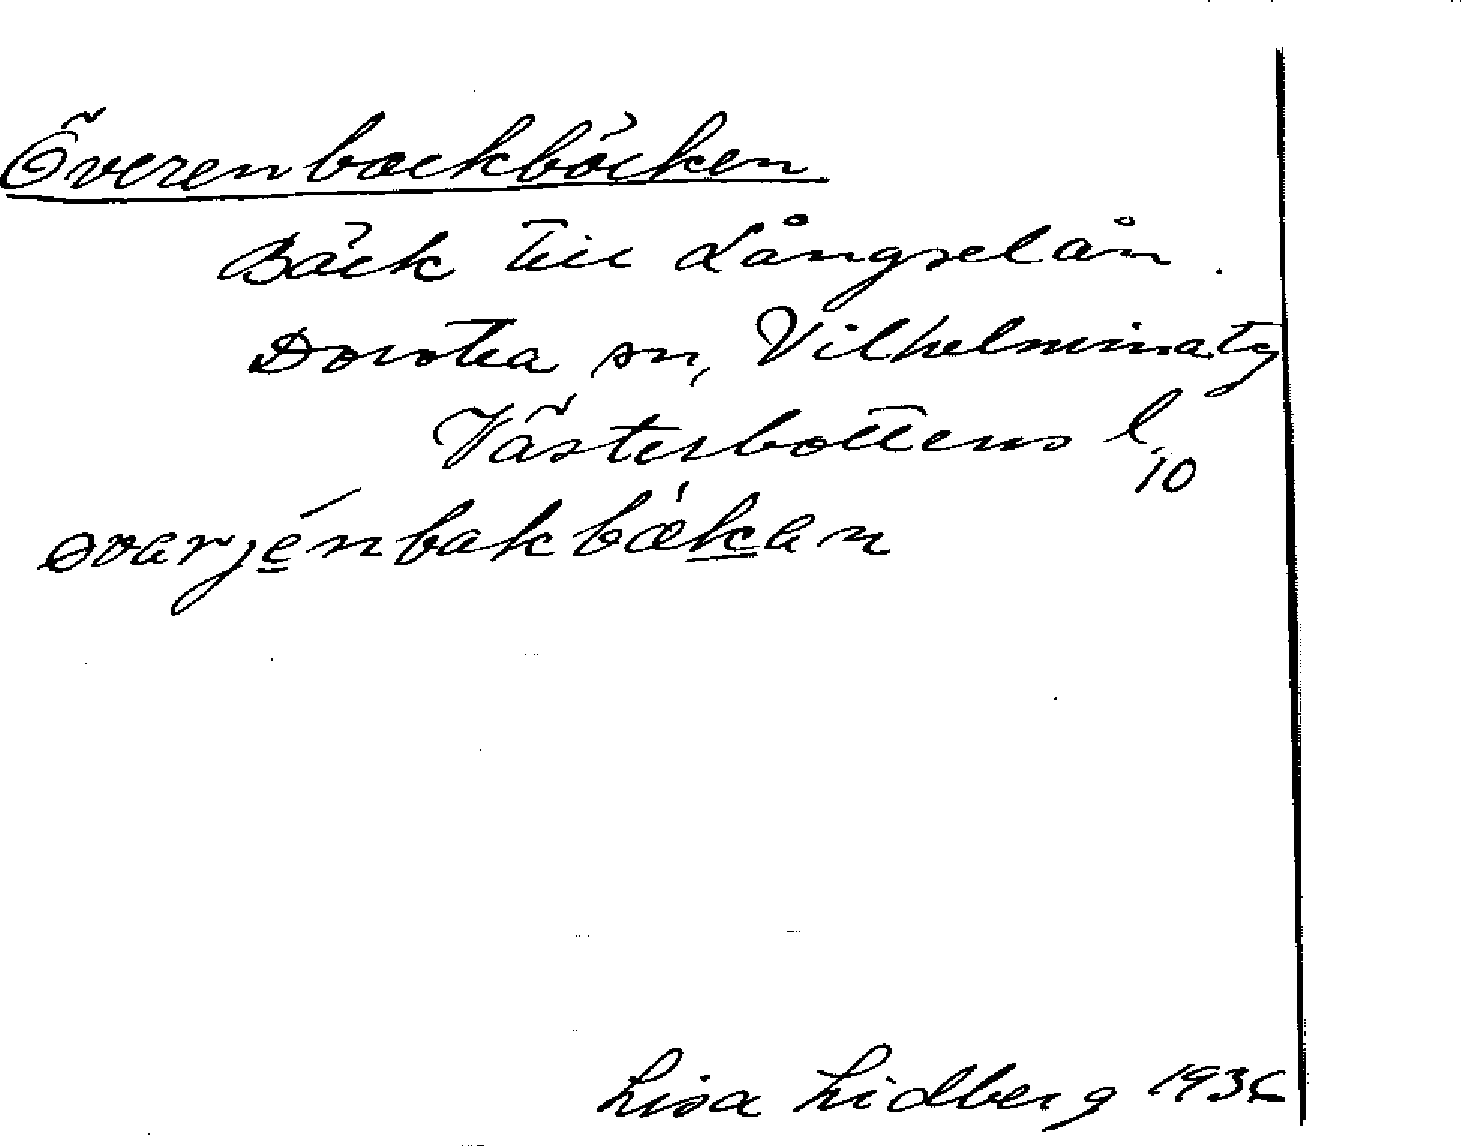 Överenbackbäcken
Bäck till Långselån.
Dorotea sn, Vilhelmina tg
Västerbottens l.
10
Lisa Lidberg 1936